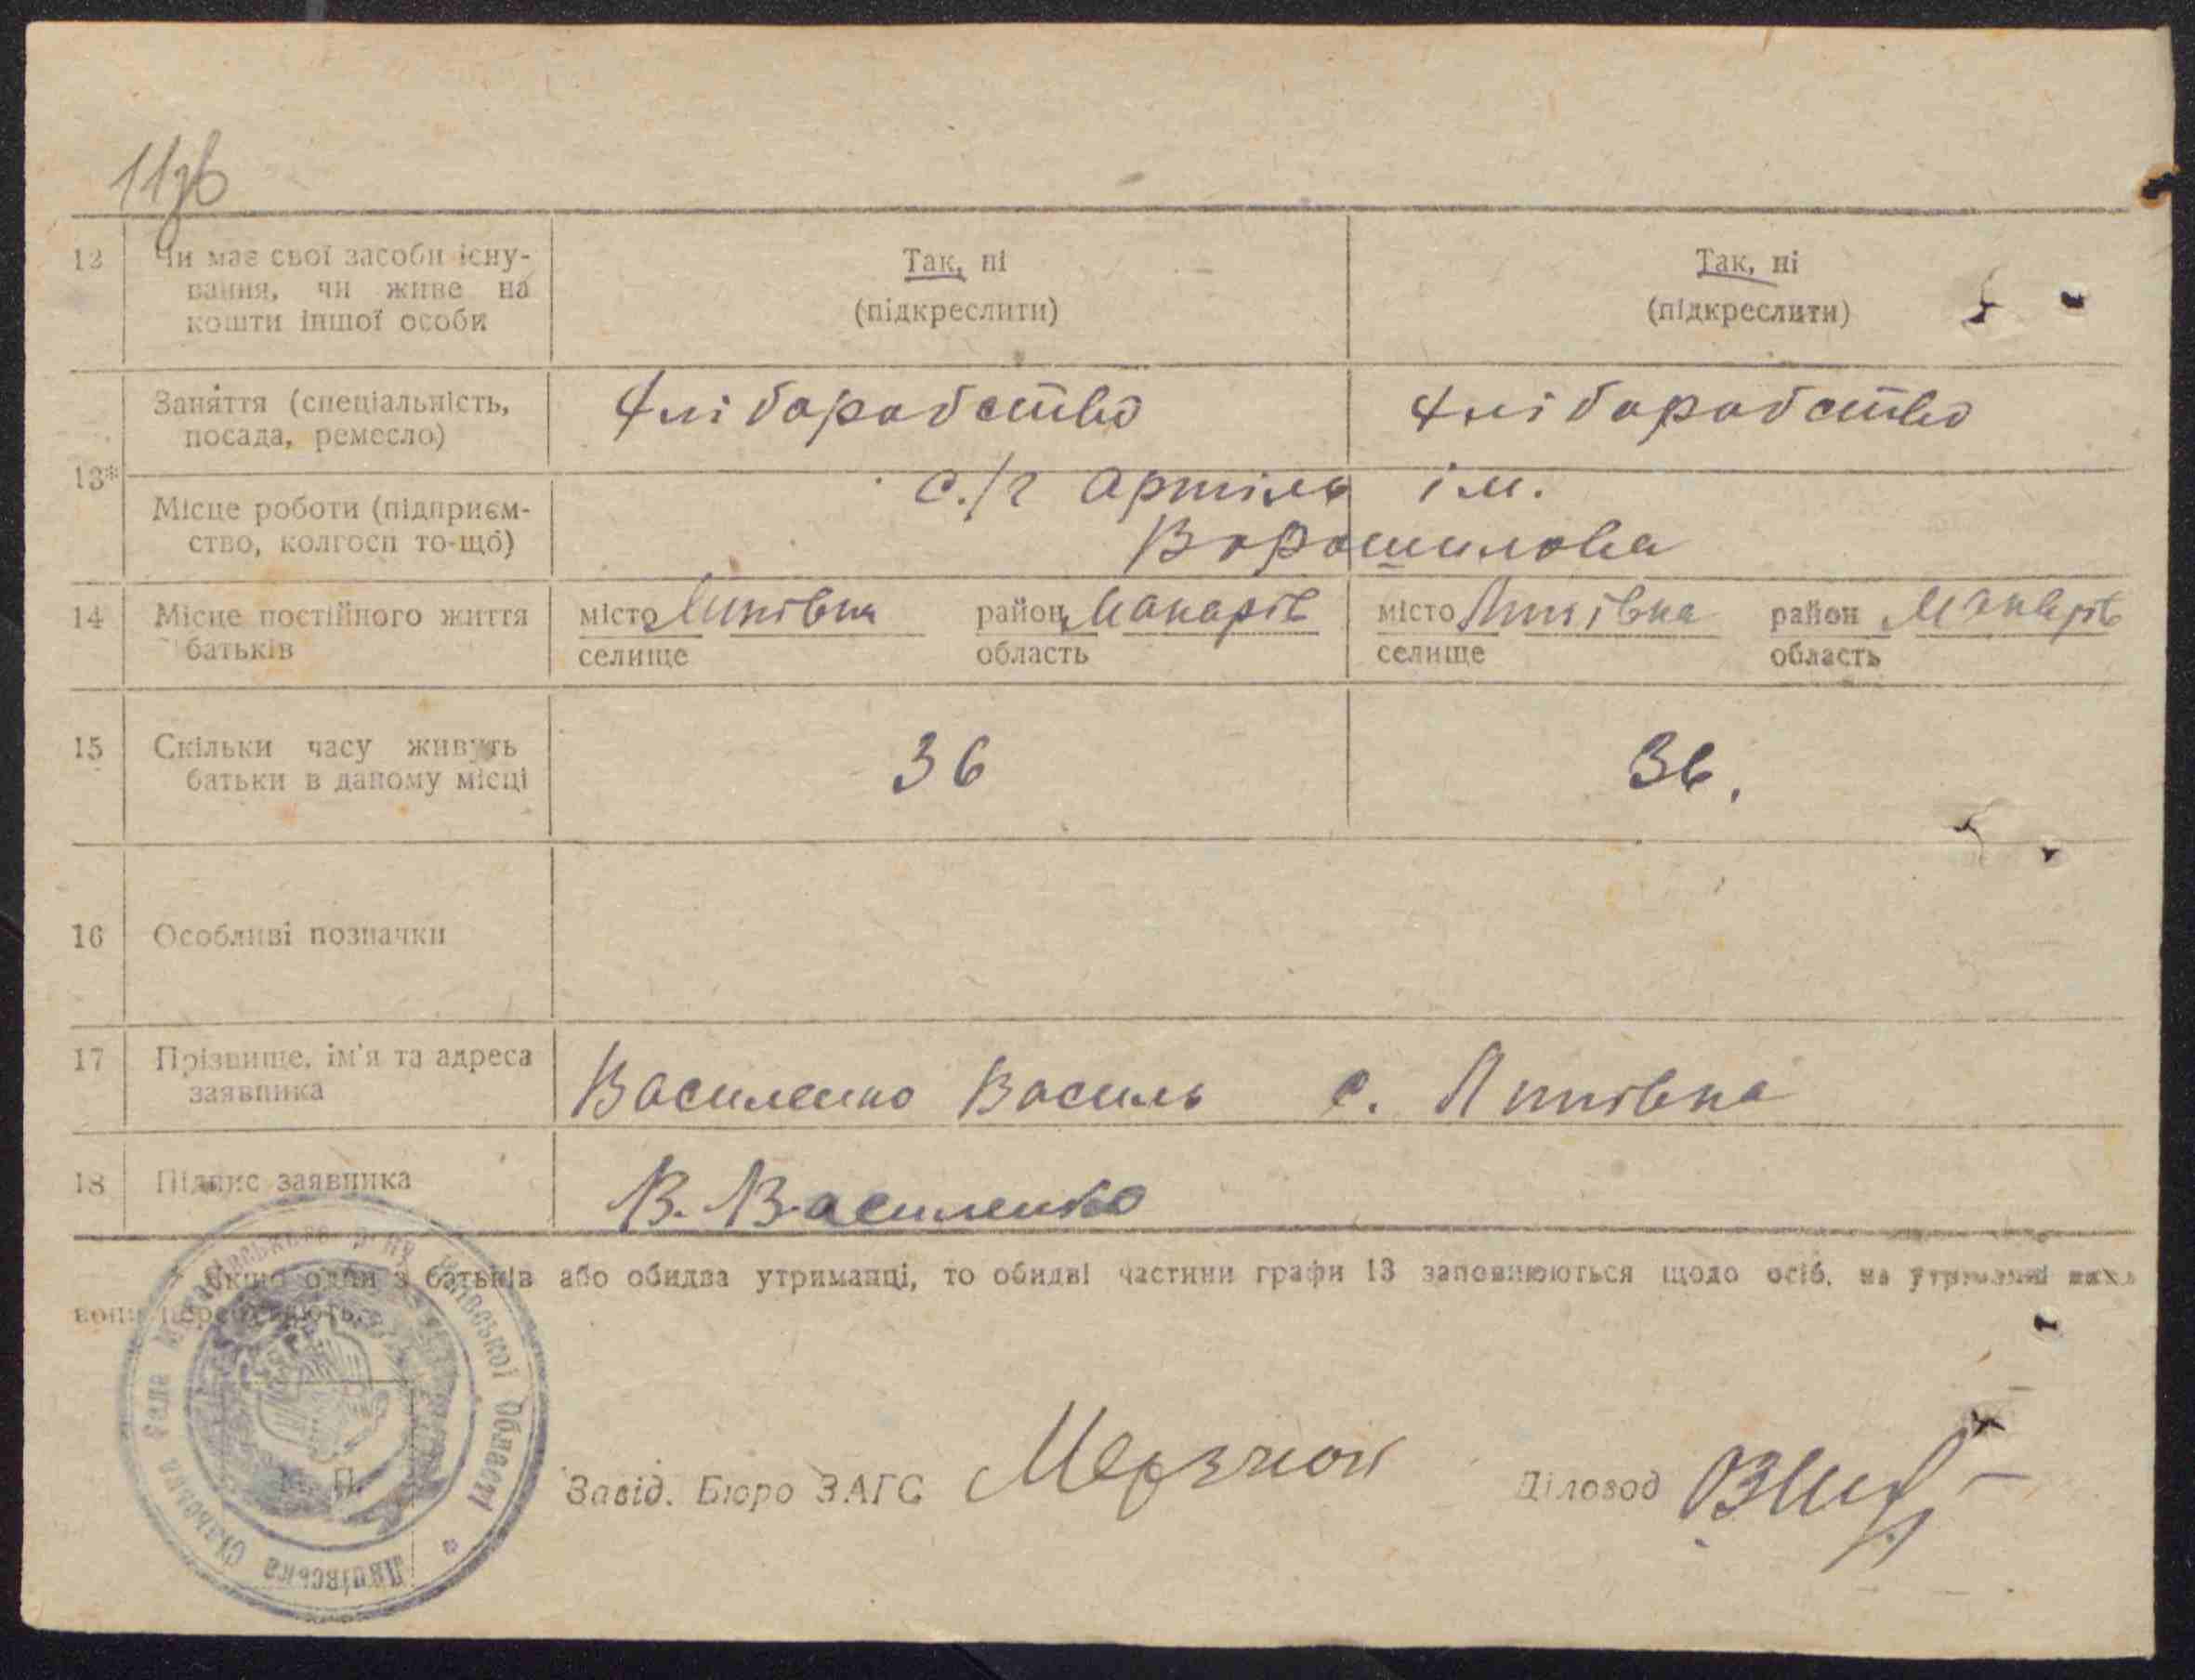 11зв
12 Чи має свої засоби існу-
вання, чи живе на
кошти іншої особи
Так, ні
(підкреслити)
Так, ні
(підкреслити)
13*
Заняття (спеціальність,
посада, ремесло)
Хліборобство
Хліборобство
Місце роботи (підприєм-
ство, колгосп то-що)
с./г артіль ім.
Ворошилова
14 Місце постійного життя
батьків
місто Липівка район Макарів
селище область
місто Липівка район Макарів
селище область
15 Скільки часу живуть
батьки в даному місці
36
36.
16 Особливі позначки
17 Прізвище, ім'я та адреса
заявника
Василенко Василь с. Липівка
18 Підпис заявника
В. Василенко
Якщо один з батьків або обидва утриманці, то обидві частини графи 13 заповнюються щодо осіб, на утриманні яких
вони перебувають.
Липівська Сільська Рада Макарівського р-ну Київської Області
М. П.
Завід. Бюро ЗАГС
Діловод